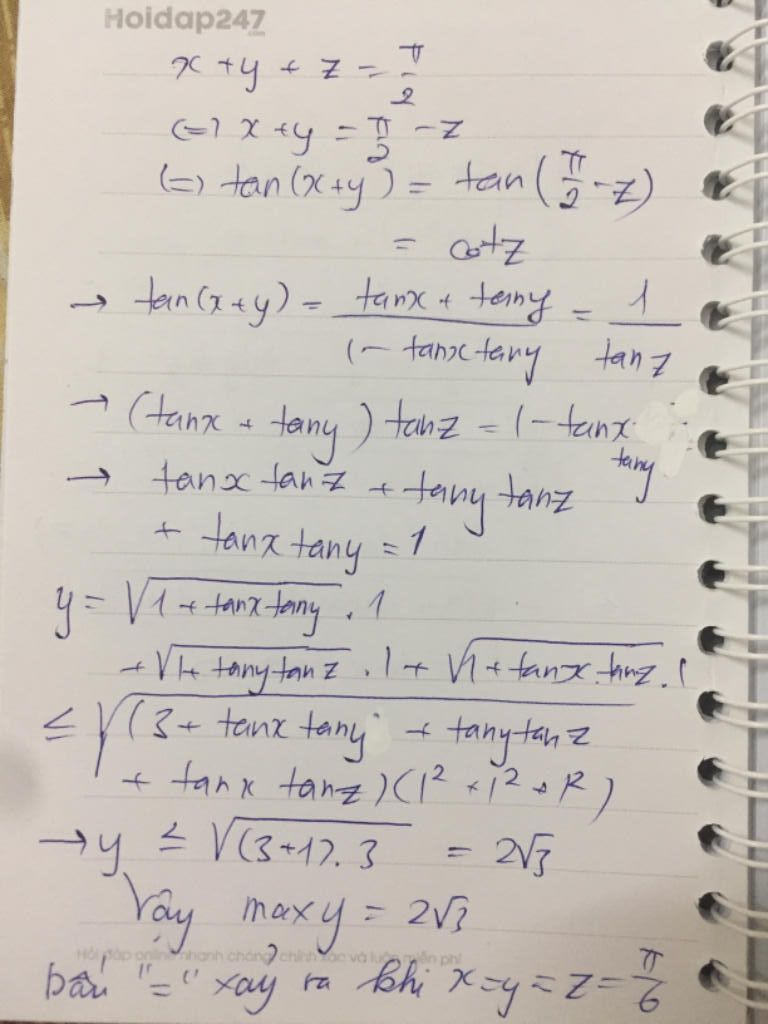 Hoidap247
.com
x + y + z = π/2
(=) x + y = π/2 - z
(=) tan(x+y) = tan(π/2 - z)
= cot z
→ tan(x+y) = (tanx + tany)/(1 - tanx tany) = 1/tan z
→ (tanx + tany) tanz = 1 - tanx tany
→ tanx tanz + tany tanz
+ tanx tany = 1
y = √(1 + tanx tany) . 1
+ √(1 + tany tanz) . 1 + √(1 + tanx . tanz) . 1
≤ √((3 + tanx tany + tany tanz
+ tanx tanz)(1² + 1² + 1²))
→ y ≤ √((3+1).3) = 2√3
Vậy max y = 2√3
Hỏi đáp online nhanh chóng, chính xác và luôn miễn phí
Dấu "=" xảy ra khi x=y=z=π/6